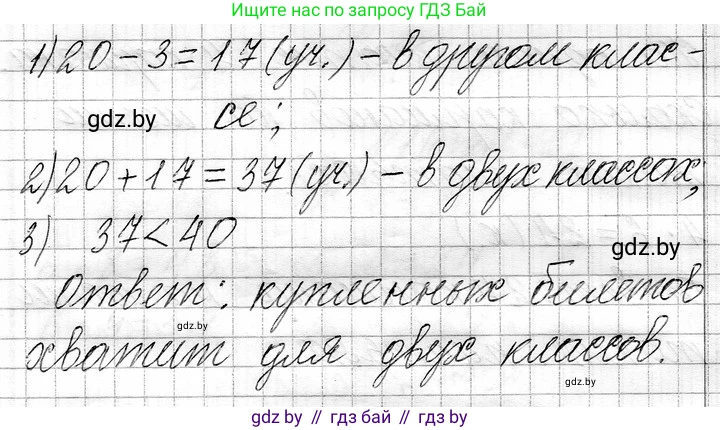 Ищите нас по запросу ГДЗ Бай
1) 20 - 3 = 17 (уч.) - в другом клас-
gdz.by се;
2) 20 + 17 = 37 (уч.) - в двух классах;
3) 37 < 40
gdz.by
Ответ: купленных билетов
gdz.by
хватит для двух классов.
gdz.by
gdz.by // гдз бай // гдз by